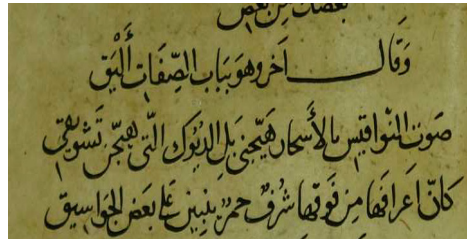 بعضك من بعض
وَقال آخر وهو بباب الصِّفَات أَلْيَق
صَوت النّواقيس بالأَسحار هَيّجني بَل الديُوك الّتي هيّجن تَشويقي
كانّ اَعرافَها مِن فَوقها شُرفٌ حمر بنين على بعَض الجَواسيق